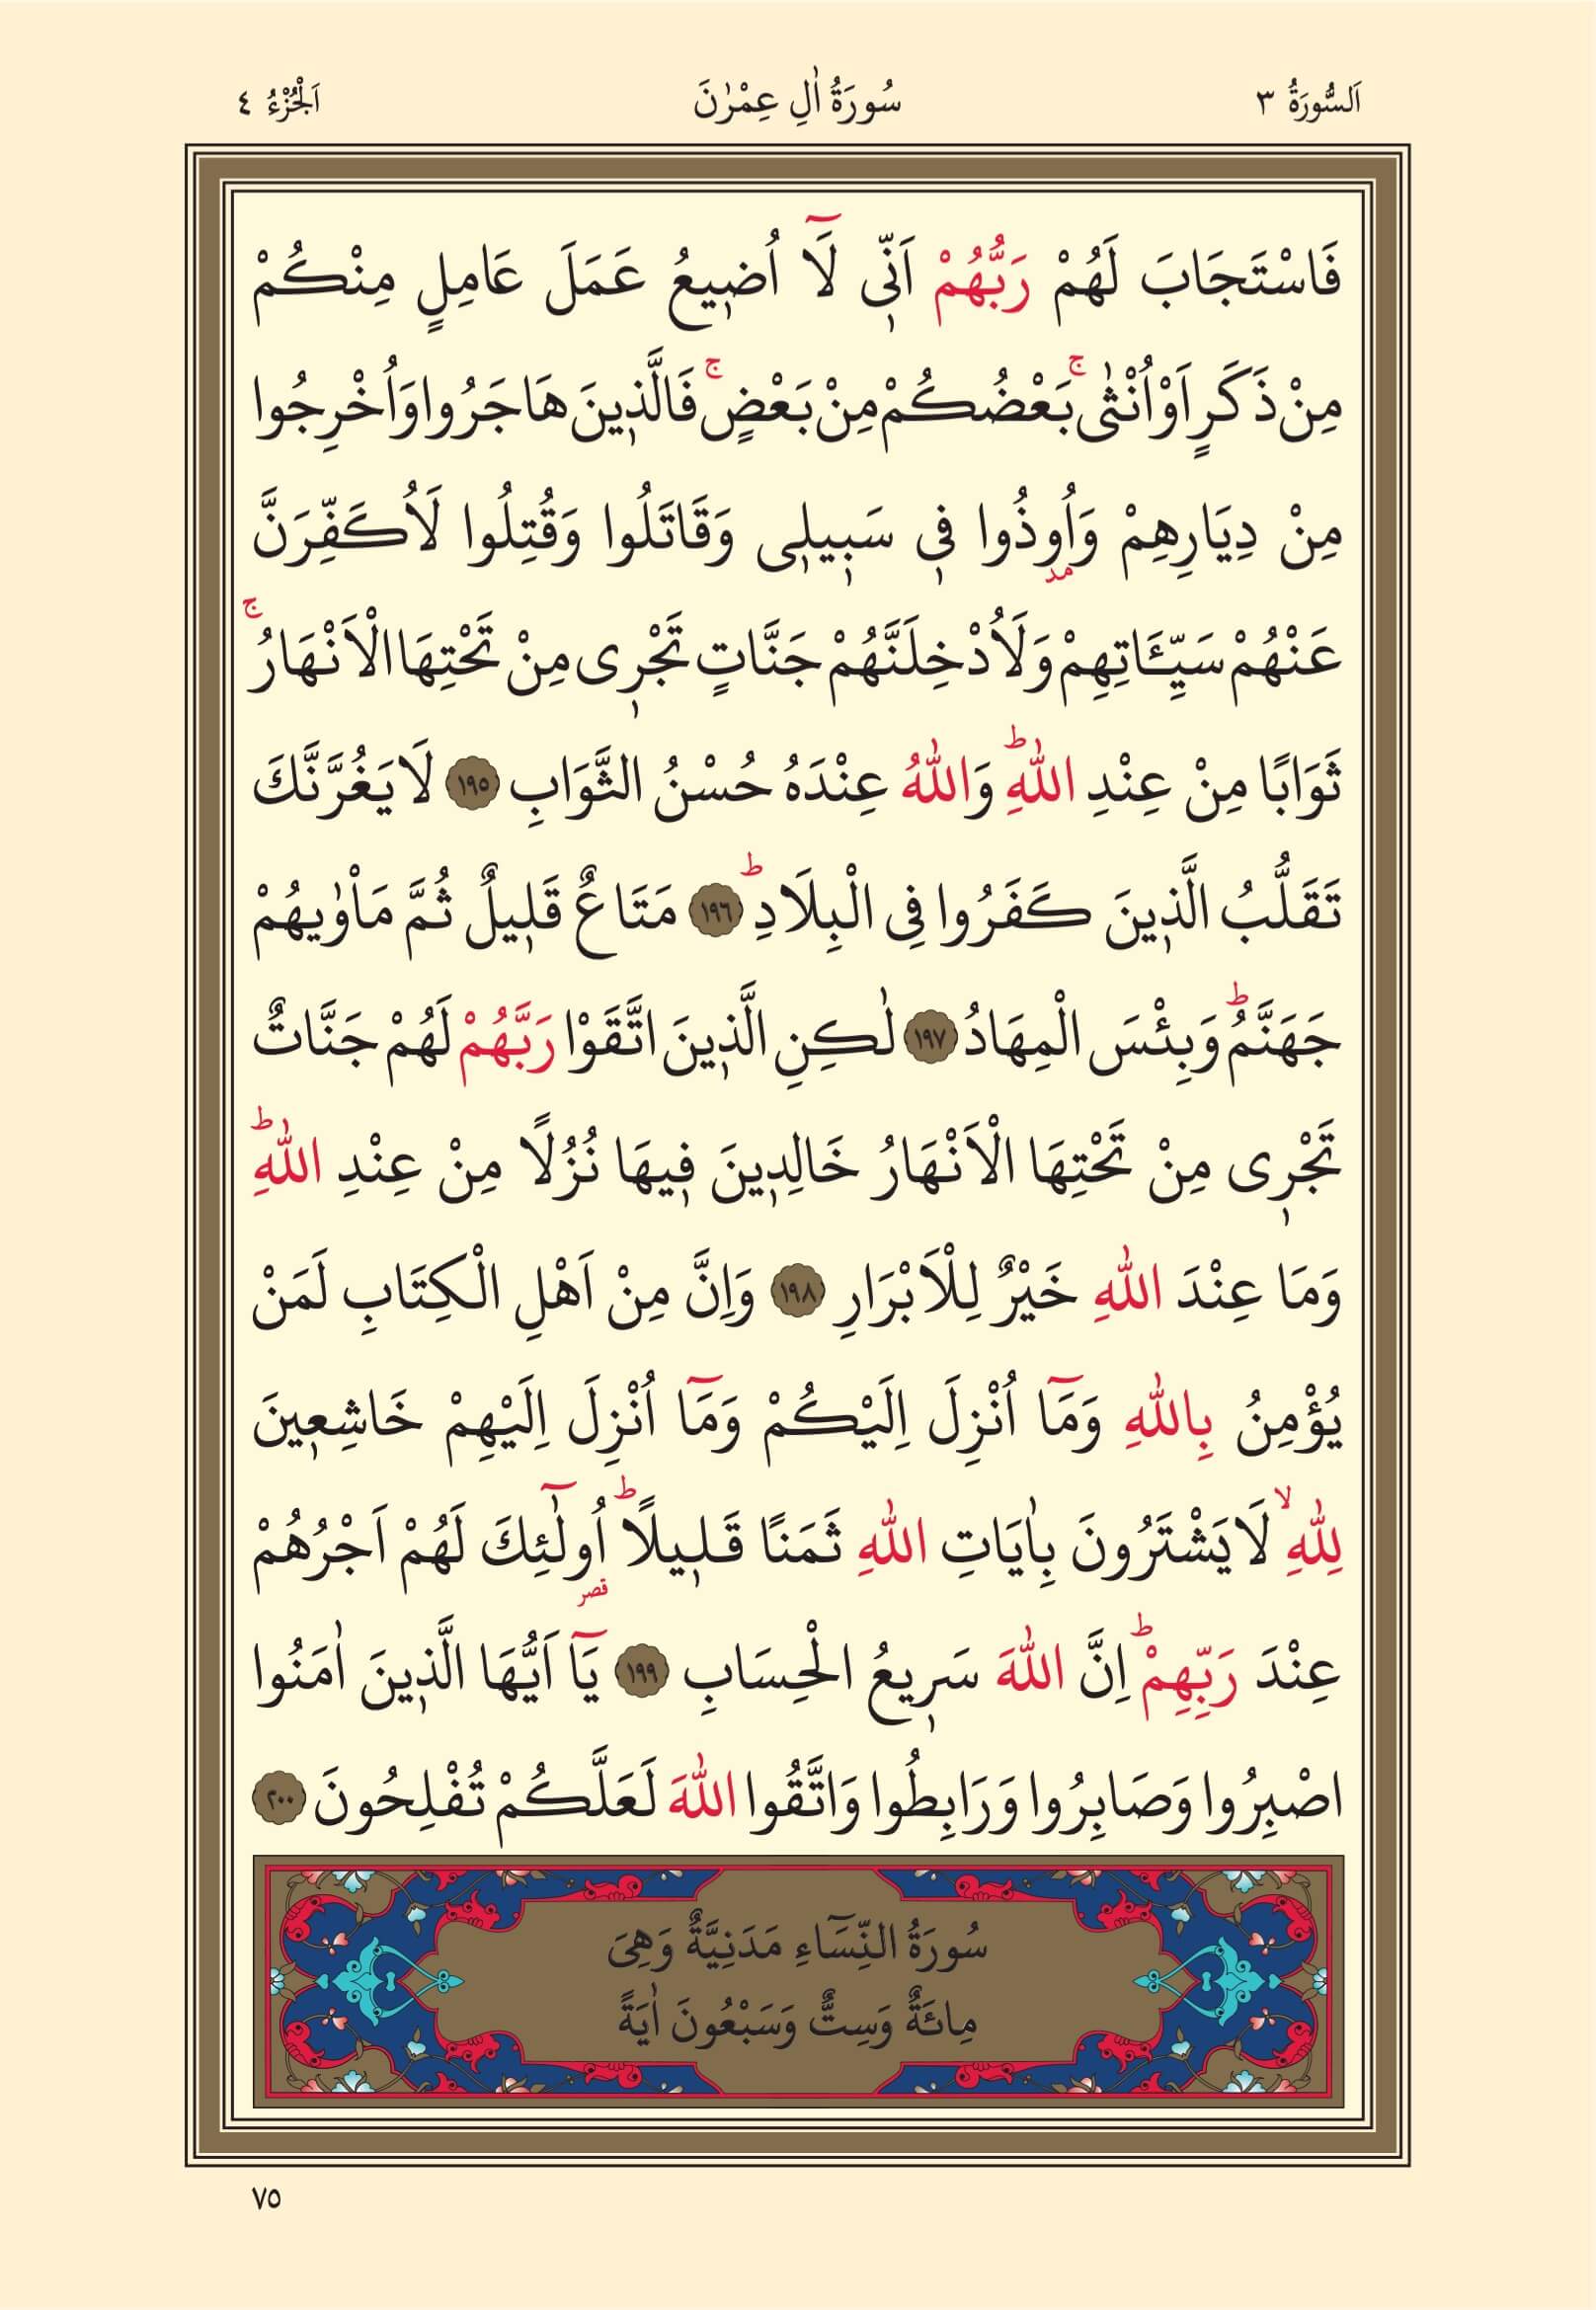 اَلسُّورَةُ ٣ سُورَةُ اٰلِ عِمْرٰنَ اَلْجُزْءُ ٤
فَاسْتَجَابَ لَهُمْ رَبُّهُمْ اَنّ۪ي لَٓا اُض۪يعُ عَمَلَ عَامِلٍ مِنْكُمْ
مِنْ ذَكَرٍ اَوْ اُنْثٰىۚ بَعْضُكُمْ مِنْ بَعْضٍۚ فَالَّذ۪ينَ هَاجَرُوا وَاُخْرِجُوا
مِنْ دِيَارِهِمْ وَاُو۫ذُوا ف۪ي سَب۪يل۪ي وَقَاتَلُوا وَقُتِلُوا لَاُكَفِّرَنَّ
عَنْهُمْ سَيِّـَٔاتِهِمْ وَلَاُدْخِلَنَّهُمْ جَنَّاتٍ تَجْر۪ي مِنْ تَحْتِهَا الْاَنْهَارُۚ
ثَوَابًا مِنْ عِنْدِ اللّٰهِؕ وَاللّٰهُ عِنْدَهُ حُسْنُ الثَّوَابِ ١٩٥ لَا يَغُرَّنَّكَ
تَقَلُّبُ الَّذ۪ينَ كَفَرُوا فِي الْبِلَادِؕ ١٩٦ مَتَاعٌ قَل۪يلٌ ثُمَّ مَاْوٰيهُمْ
جَهَنَّمُؕ وَبِئْسَ الْمِهَادُ ١٩٧ لٰكِنِ الَّذ۪ينَ اتَّقَوْا رَبَّهُمْ لَهُمْ جَنَّاتٌ
تَجْر۪ي مِنْ تَحْتِهَا الْاَنْهَارُ خَالِد۪ينَ ف۪يهَا نُزُلًا مِنْ عِنْدِ اللّٰهِؕ
وَمَا عِنْدَ اللّٰهِ خَيْرٌ لِلْاَبْرَارِ ١٩٨ وَاِنَّ مِنْ اَهْلِ الْكِتَابِ لَمَنْ
يُؤْمِنُ بِاللّٰهِ وَمَٓا اُنْزِلَ اِلَيْكُمْ وَمَٓا اُنْزِلَ اِلَيْهِمْ خَاشِع۪ينَ
لِلّٰهِۙ لَا يَشْتَرُونَ بِاٰيَاتِ اللّٰهِ ثَمَنًا قَل۪يلًاؕ اُو۬لٰٓئِكَ لَهُمْ اَجْرُهُمْ
عِنْدَ رَبِّهِمْؕ اِنَّ اللّٰهَ سَر۪يعُ الْحِسَابِ ١٩٩ يَٓا اَيُّهَا الَّذ۪ينَ اٰمَنُوا
اصْبِرُوا وَصَابِرُوا وَرَابِطُوا وَاتَّقُوا اللّٰهَ لَعَلَّكُمْ تُفْلِحُونَ ٢٠٠
سُورَةُ النِّسَٓاءِ مَدَنِيَّةٌ وَهِيَ
مِائَةٌ وَسِتٌّ وَسَبْعُونَ اٰيَةً
٧٥